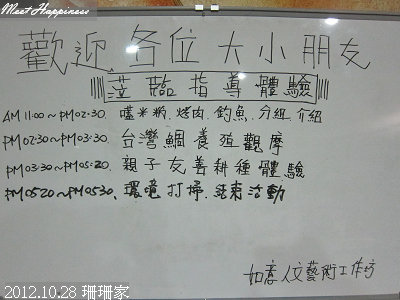 Meet Happiness
歡迎各位大小朋友
蒞臨指導體驗
AM 11:00~PM 02:30. 嗑米粉.烤肉.釣魚.分組.介紹
PM 02:30~PM 03:30. 台灣鯛養殖觀摩
PM 03:30~PM 05:20. 親子友善耕種體驗
PM 05:20~PM 05:30. 環境打掃.結束活動
如意人文藝術工作坊
2012.10.28 珊珊家